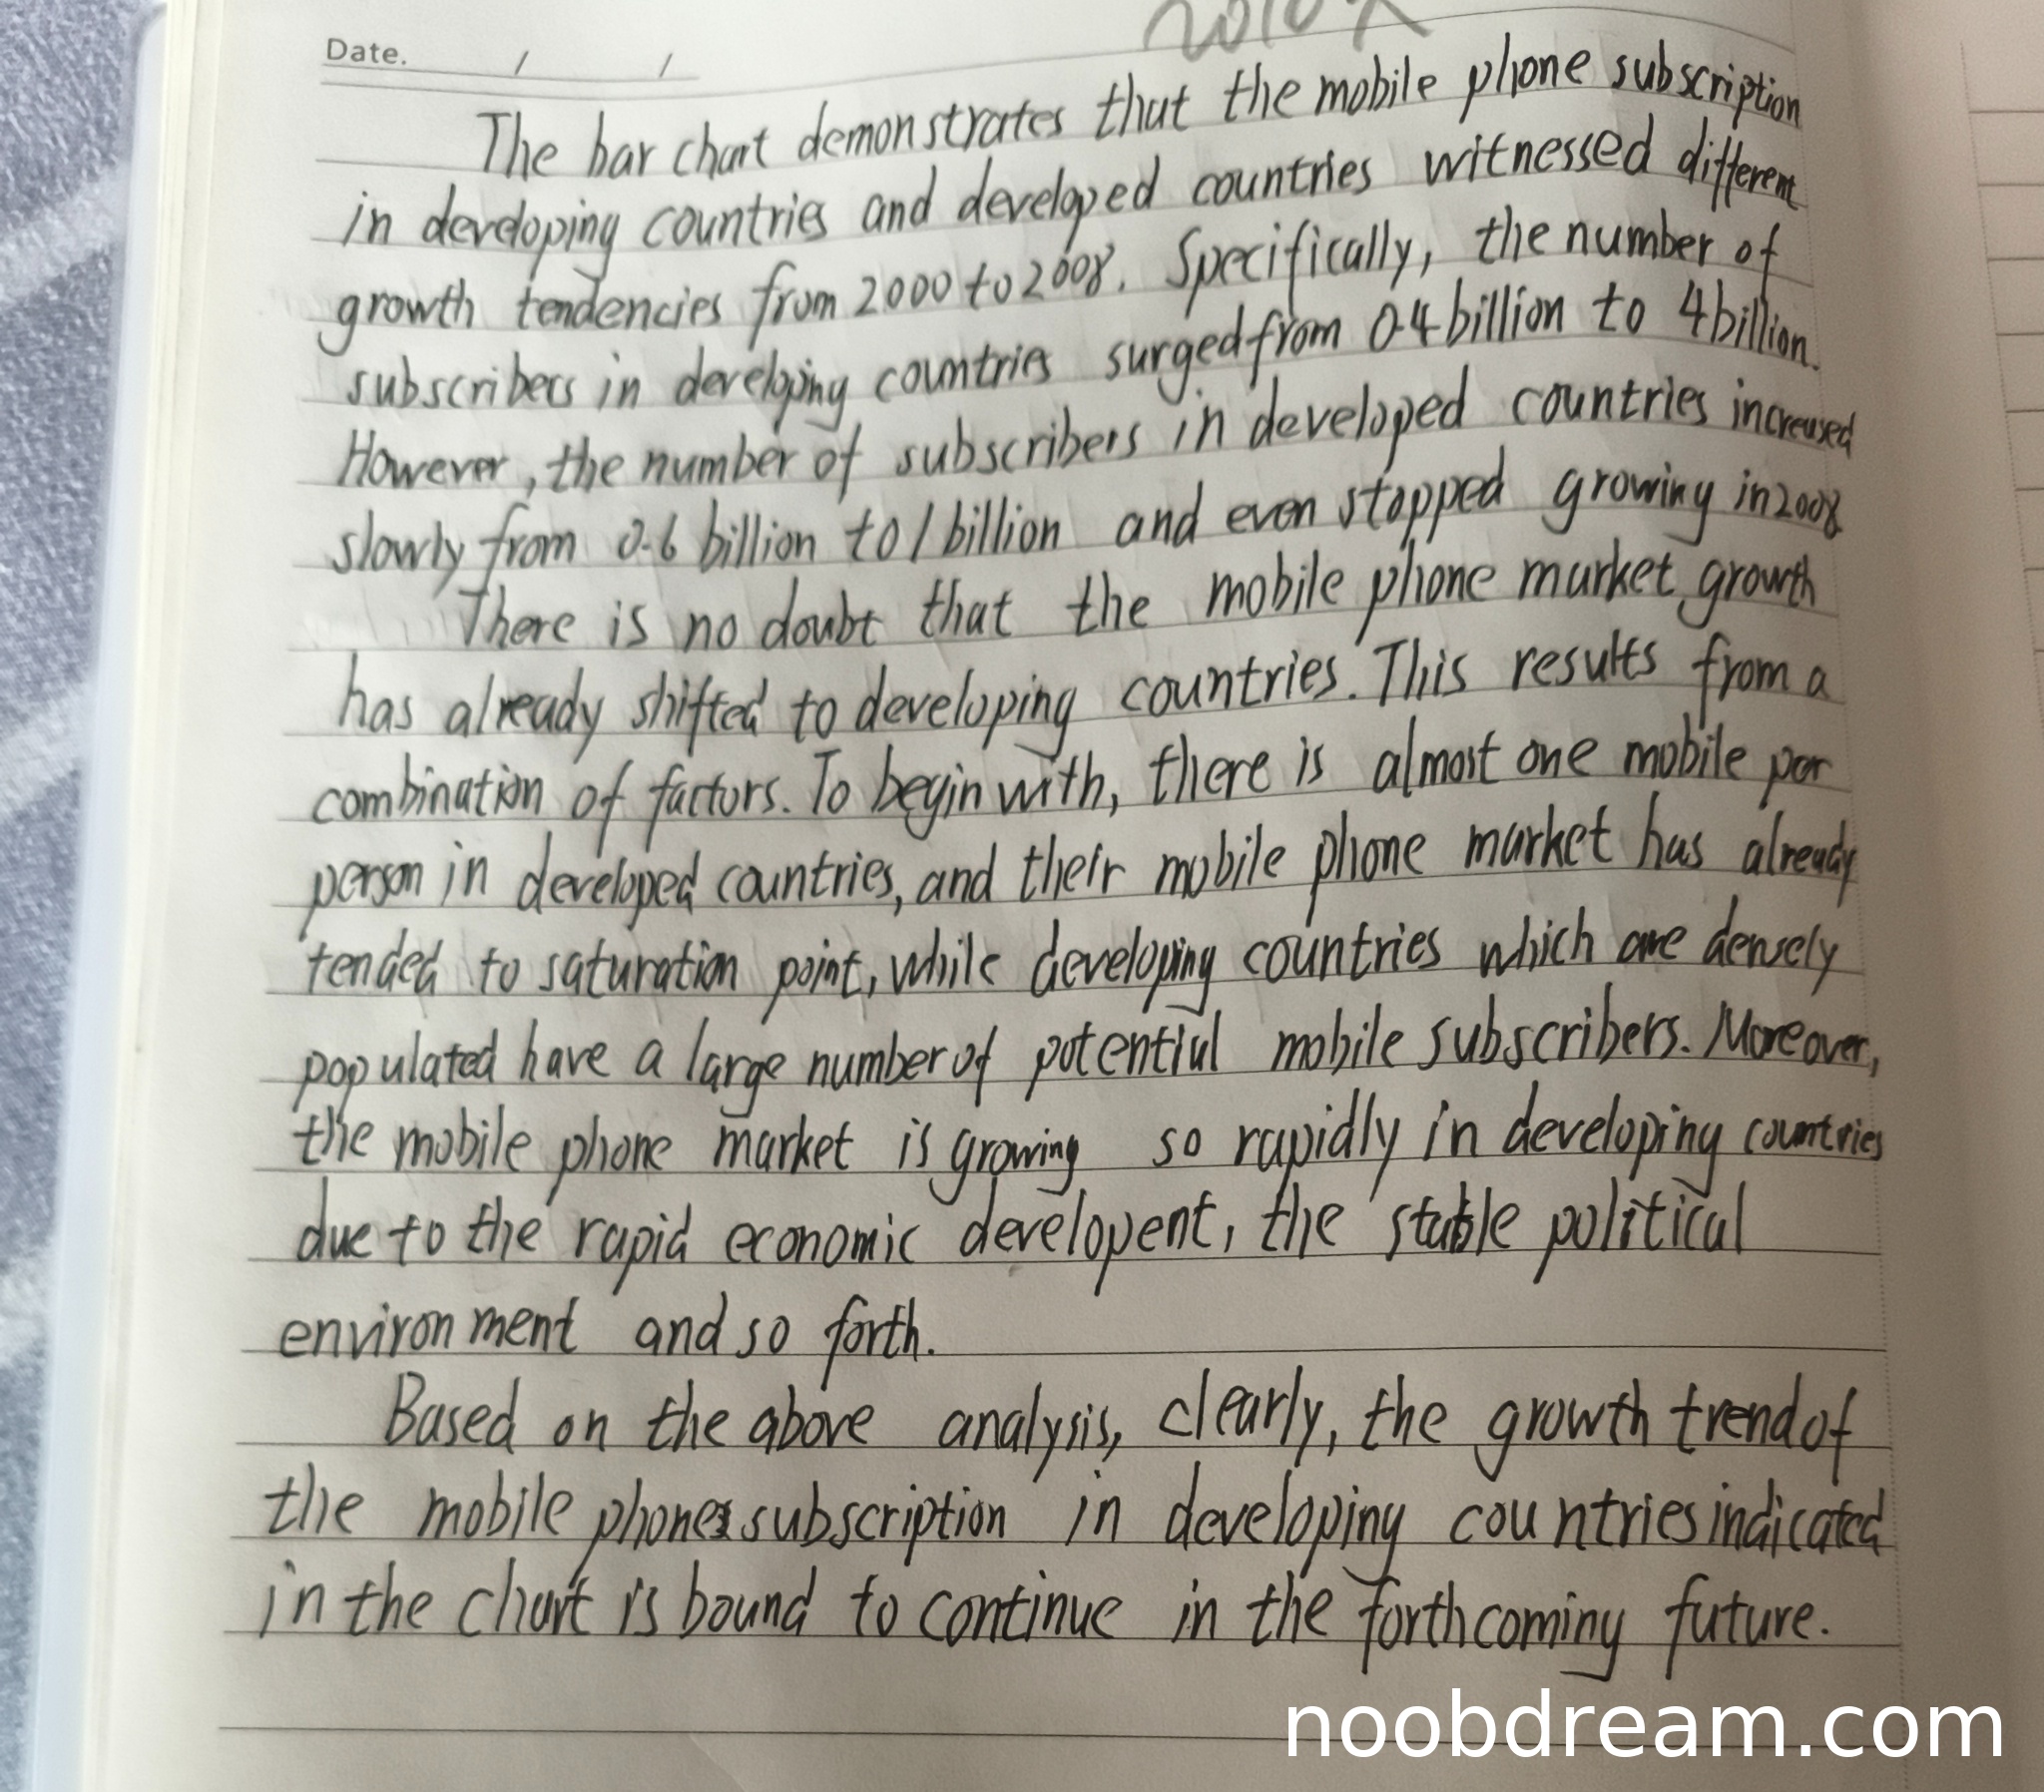 Date. / /
The bar chart demonstrates that the mobile phone subscription
in developing countries and developed countries witnessed different
growth tendencies from 2000 to 2008. Specifically, the number of
subscribers in developing countries surged from 0.4 billion to 4 billion.
However, the number of subscribers in developed countries increased
slowly from 0.6 billion to 1 billion and even stopped growing in 2008
There is no doubt that the mobile phone market growth
has already shifted to developing countries. This results from a
combination of factors. To begin with, there is almost one mobile per
person in developed countries, and their mobile phone market has already
tended to saturation point, while developing countries which are densely
populated have a large number of potential mobile subscribers. Moreover,
the mobile phone market is growing so rapidly in developing countries
due to the rapid economic developent, the stable political
environment and so forth.
Based on the above analysis, clearly, the growth trend of
the mobile phones subscription in developing countries indicated
in the chart is bound to continue in the forthcoming future.
noobdream.com